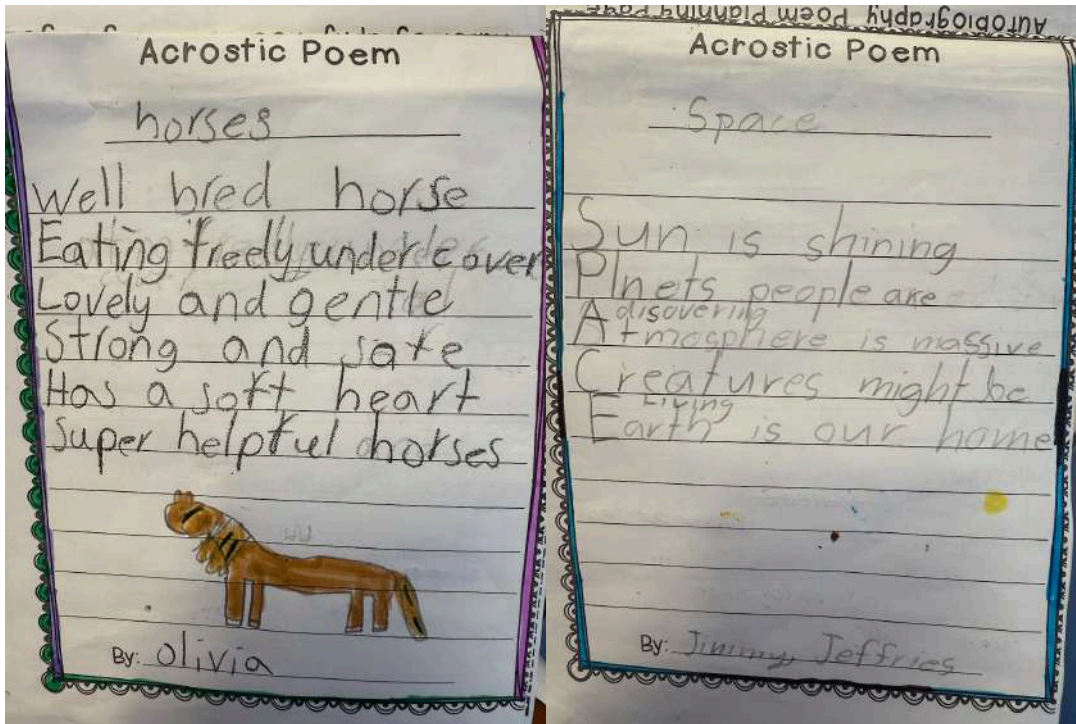 Acrostic Poem
horses
Well bred horse
Eating freely under cover
Lovely and gentle
Strong and safe
Has a soft heart
Super helpful horses
By: Olivia
Autobiography Poem Planning Page
Acrostic Poem
Space
Sun is shining
Plnets people are
disovering
Atmosphere is massive
Creatures might be
Living
Earth is our home
By: Jimmy Jeffries